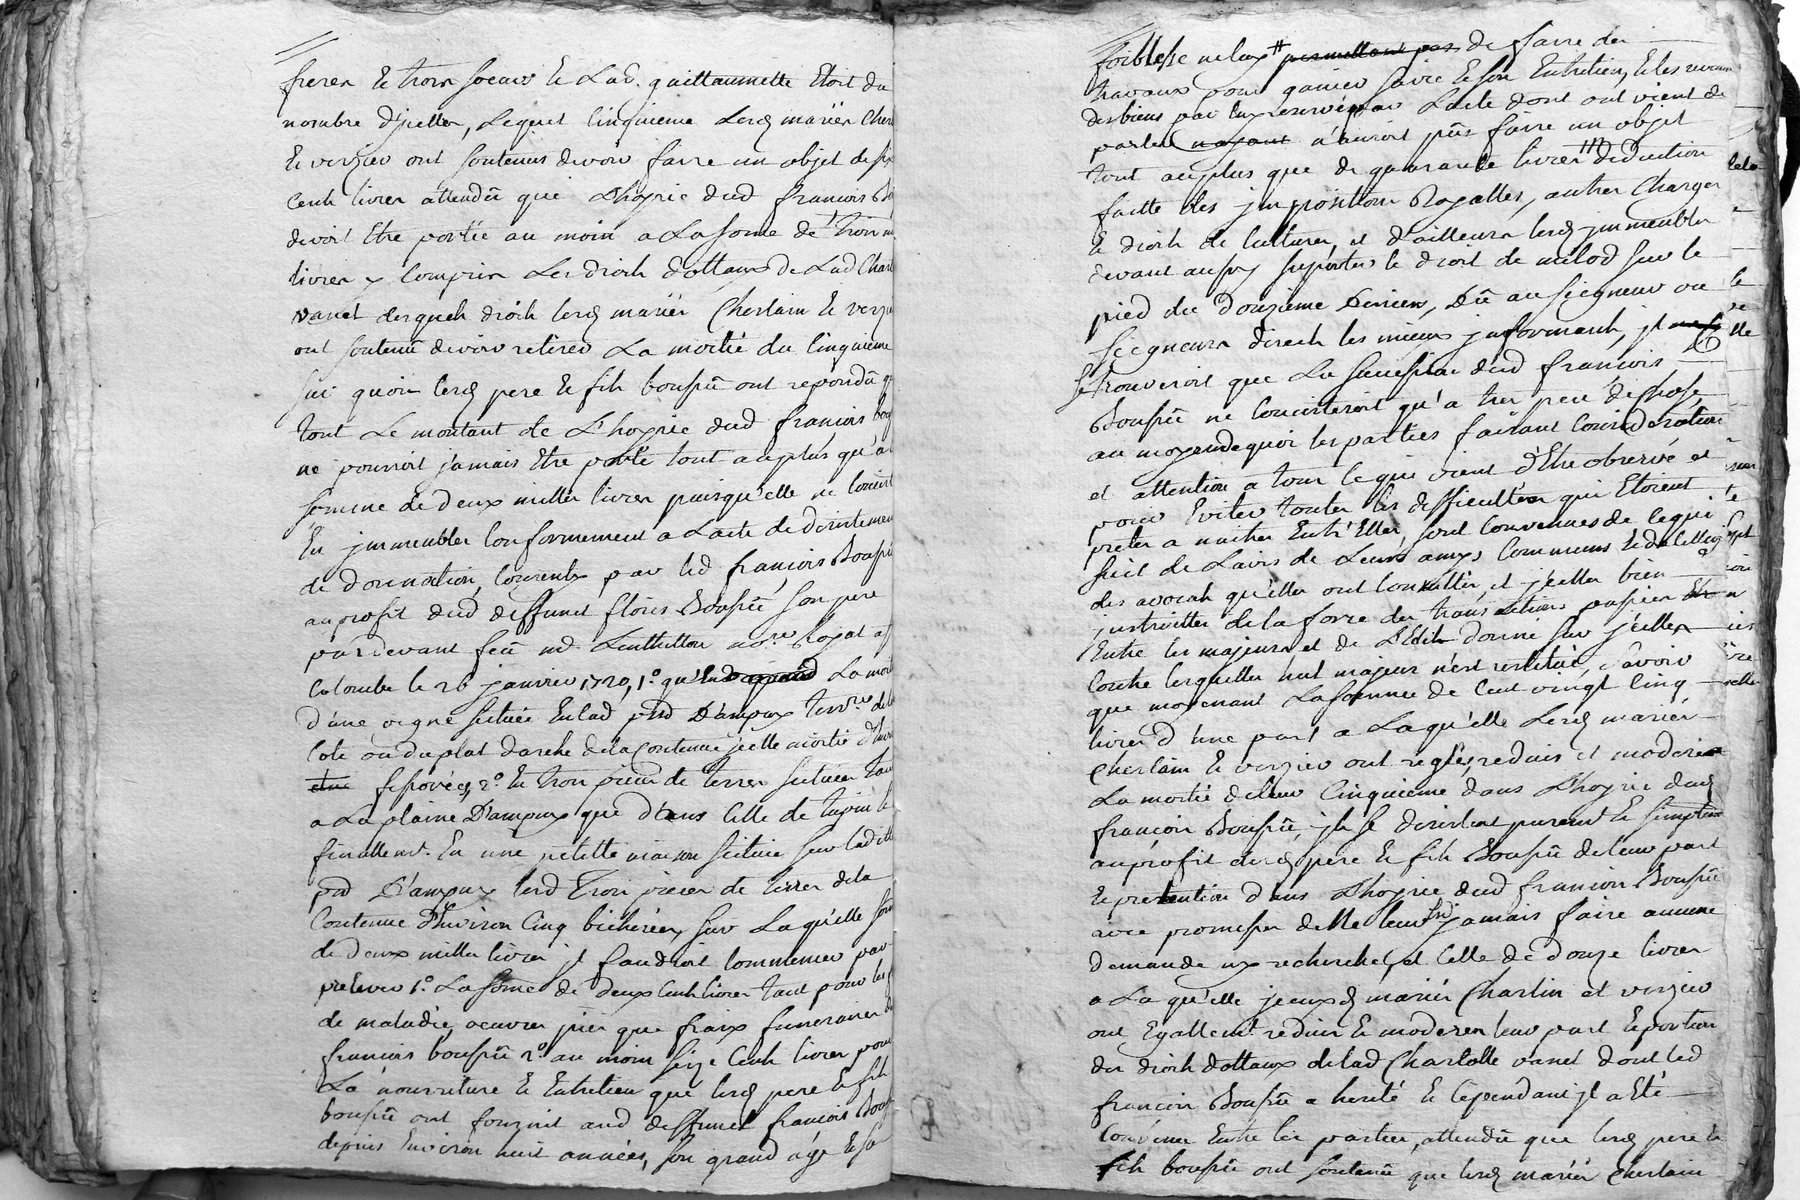 freres et trois soeurs et Lad. guillaumette Etoit du
nombre d'jcelles, Lequel Cinquieme Lesd mariés Cher
et verzieu ont soutenus devoir faire un objet de six
cent livres attendû que L'hoyrie dud francois Bo
devoit Etre portée au moin a La some de trois m
livres y Compris Les droits dottaux de Lad Charl
vanel desquels droits lesd mariés Cherlain et verzi
ont soutenû devoir retirer La moitié du Cinquieme
sur quoi lesd pere et fils boussû ont repondû q
tout Le montant de L'hoyrie dud francois bou
ne pourroit jamais Etre porté tout au plus qu'a
somme de deux milles livres puisqu'elle ne Consist
En jmmeubles Conformement a L'acte de desistemen
de donnation, Consentis par led francois Boussû
au profit dud deffunct Boussû son pere
pardevant feû me. no.re Royal
Colombe le 26 janvier 1720, 1.° La moi
d'une vigne scituée En lad psse D'ampuy terr.re de la
Cote ou du plat de la Contenue jcelle moitié d'
2.° En trois pieces de terres scituées tan
a La plaine D'ampuy que dans Celle de
finallemt. En une petitte maison scituée sur ladite
psse D'ampuy lesd trois pieces de terres de la
Contenue d'Environ Cinq bicherées, sur Laquelle som
de deux milles livres jl faudroit Commencer par
prelever 1.° La some de deux Cent livres tant pour les f
de maladie, oeuvres pies que fraix funeraires d
francois boussû 2.° au moin seize Cent livres pour
La nourriture et Entretien que lesd pere et fils
boussû ont fournit aud deffunct francois Bous
depuis Environ huit années, son grand âge et sa
foiblesse ne luy # permettant pas de faire des
travaux pour ganier sa vie et son Entretien, et les revenus
des biens par luy reservés par L'acte dont ont vient de
parler n'auroit pûs faire un objet
tout au plus que de quarante livres deduction
faitte des jmpositions Royalles, autres Charges
et droits de Cultures, et d'ailleurs lesd jmmeubles
devant aussy suporter le droit de milod sur le
pied du douzieme Deniers, Dû au seigneur ou
seigneurs directs les mieux jnformants, jl
se trouveroit que La succession dud francois
Boussû ne Concisteroit qu'a tres peu de chose,
au moyen de quoi les parties faisant Consideration
et attention a tout ce qui vient d'Etre observé et
pour Eviter toutes les difficultées qui Etoient
pretes a naitre Entr'Elles, sont Convenues de ce qui
suit de L'avis de Leurs amys Communs et de Celluy
des avocats qu'elles ont Consultés, et jcelles bien
jnstruittes de la force des transactions passées
Entre les majeurs et de L'Edit donné sur jcelles
Contre lesquelles nul majeur n'est restitué, sçavoir
que moyenant La somme de Cent vingt Cinq
livres d'une part a Laquelle Lesd mariés
Cherlain et verzieu ont reglés, reduis et moderé
La moitié de leur Cinquieme dans L'hoyrie dud
francois Boussû, jls se desistent purement et simplem
au profit desd pere et fils Boussû de leur part
et pretention dans L'hoyrie dud francois Boussû
avec promesse de ne leur jamais faire aucune
demande ny recherche, et Celle de douze livres
a Laquelle jceux d mariés Charlin et verzieu
ont Egallemt reduis et moderes leur part et portion
des droits dottaux de lad Charlotte vanel dont led
francois Boussû a herité et Cependant jl a Eté
Convenu Entre les parties, attendû que lesd pere et
fils boussû ont soutenû que lesd mariés Cherlain